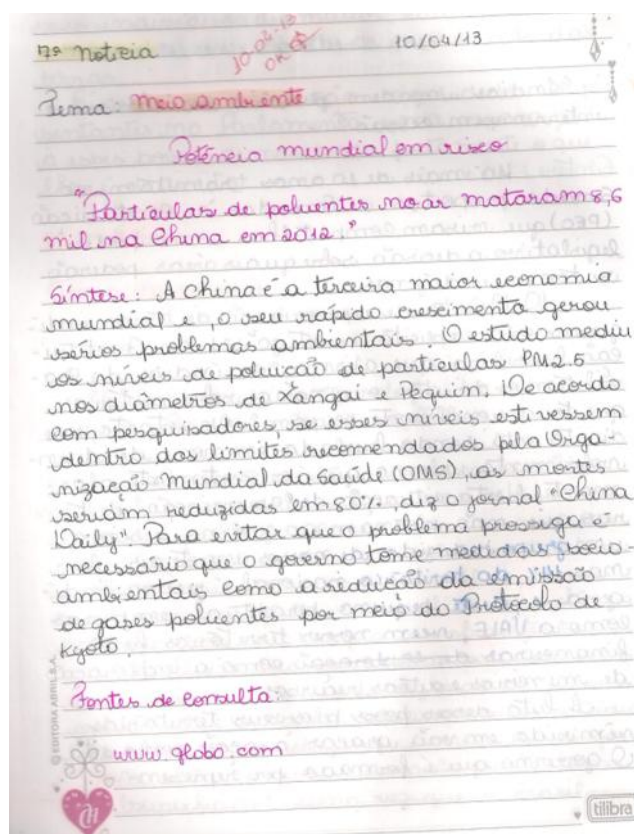 17ª notícia 10/04/13
10-08-13
OK
Tema: meio ambiente
Potência mundial em risco
"Partículas de poluentes no ar mataram 8,6
mil na China em 2012."
Síntese: A China é a terceira maior economia
mundial e, o seu rápido crescimento gerou
sérios problemas ambientais. O estudo mediu
os níveis de poluição de partículas PM2.5
nos diâmetros de Xangai e Pequim. De acordo
com pesquisadores, se esses níveis estivessem
dentro dos limites recomendados pela Orga-
nização Mundial da Saúde (OMS), as mortes
seriam reduzidas em 80%, diz o jornal "China
Daily". Para evitar que o problema prossiga é
necessário que o governo tome medidas socio-
ambientais como a redução da emissão
de gases poluentes por meio do Protocolo de
Kyoto.
Fontes de consulta:
www.globo.com
© EDITORA ABRIL S.A.
tilibra